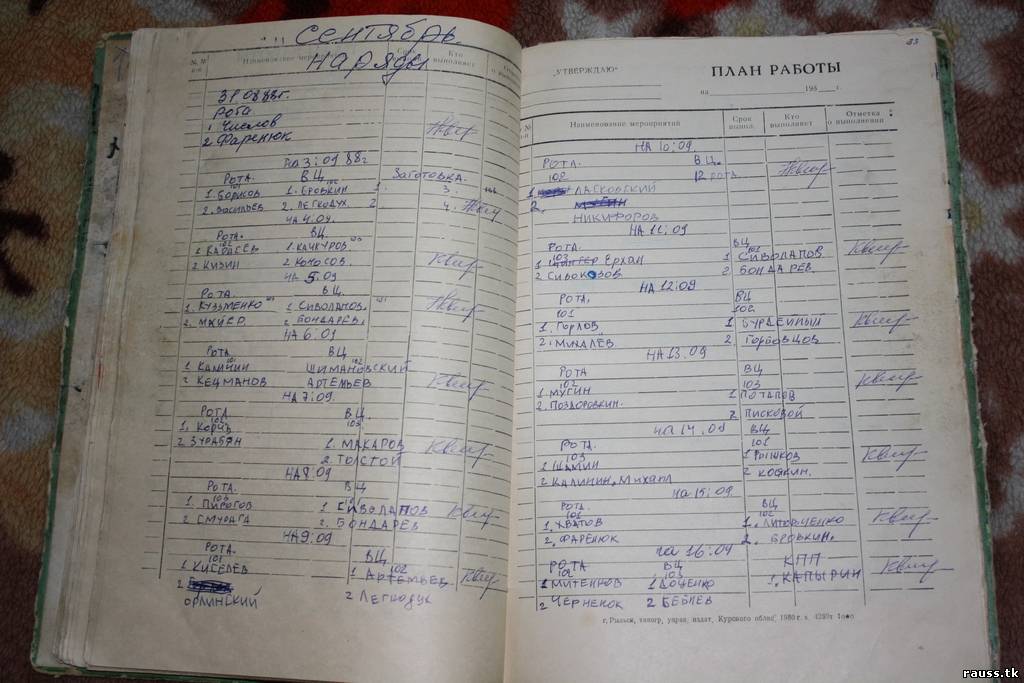 Сентябрь
Наряды
№№ п-п Наименование мер Срок Кто выполняет
31 08 88г.
Рота
1 Числов
2 Фаренюк
На 3:09 88г
Рота. ВЦ. Заготовка.
101 102
1. Борисов 1. Бровкин 1. 3.
2. Васильев 2. Легкодух 2 4.
на 4.09.
Рота. ВЦ.
102
1 Кадаев 1. Качкуров
2 Кизин 2 Колосов.
на 5.09
Рота. ВЦ.
1. Кузьменко 1 Сиволапов.
2. Майер 2 Бондарев.
на 6.09
Рота ВЦ
1 Калинин Шимановский
2 Кецманов Артемьев
На 7:09.
Рота ВЦ.
102 103
1. Корчь
2 Зурабян 1. Макаров
2. Толстой
На 8.09
Рота. ВЦ
103
1. Пирогов 1 Сиволапов
2 Смурага 2. Бондарев
На 9:09
Рота. ВЦ
101 102
1 Киселев 1 Артемьев
2
Орлинский 2 Легкодух
33
"УТВЕРЖДАЮ" ПЛАН РАБОТЫ
на 198 г.
№ п-п Наименование мероприятий Срок выполн. Кто выполняет Отметка о выполнении
На 10:09
Рота. ВЦ.
102 12 рота
1 Ласковский
2.
Никифоров
На 11.09
Рота. ВЦ
103 102
1 Ерхан 1 Сиволапов
2 Сивоковов 2 Бондарев
На 12:09
Рота. ВЦ
101 102.
1. Горлов 1 Бурдейный
2. Михалев 2 Горповцов
На 13.09
Рота ВЦ
102 103
1 Мугин 1 Потапов
2. Поздоровкин.
2 Писковой
на 14.09
Рота. ВЦ
103 101
1 Шамин 1 Рышков
2 Калинин, Михалл 2 Кожкин.
на 15:09
Рота. ВЦ
101 102
1. Хватов 1. Литовченко
2. Фаренюк 2. Бровкин.
на 16:09
Рота. ВЦ КПП
102 103
1 Митенков 1 Доценко 1. Капырин
2 Черненок 2 Беблев
г. Рыльск, типогр. управ. издат. Курского облис. 1980 г. з. 4299т 1000
rauss.tk